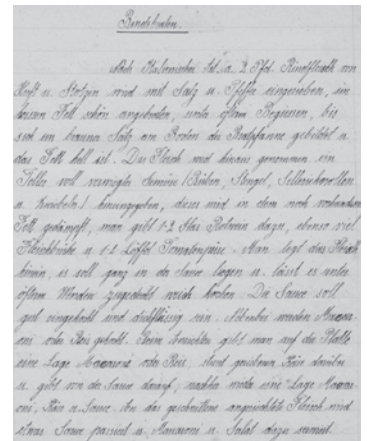 Rindsbraten.
Nach Italienischer Art. ca. 2 Pfd. Rindfleisch von
Huft u. Stotzen wird mit Salz u. Pfeffer eingerieben, im
heissen Fett schön angebraten, unter öftem Begiessen, bis
sich ein brauner Satz am Boden der Bratpfanne gebildet u.
das Fett hell ist. Das Fleisch wird heraus genommen ein
Teller voll gemüse (Rüben, Stengel, Sellerieknollen
u. Zwiebeln) hineingegeben, dieses wird in dem noch vorhandenen
Fett gedämpft, man gibt 1-2 Glas Rotwein dazu, ebenso viel
Fleischbrühe u. 1-2 Löffel Tomatenpüree. Man legt das Fleisch
hinein, es soll ganz in der Sauce liegen u. lässt es unter
öfterem Wenden zugedeckt weich kochen. Die Sauce soll
gut eingekocht und dickflüssig sein. Nebenbei werden Macaro-
ni oder Reis gekocht. Beim Anrichten gibt man auf die Platte
eine Lage Macaroni oder Reis, streut geriebenen Käse darüber
u. gibt von der Sauce darauf, nachher wieder eine Lage Macaro-
ni, Käse u. Sauce. An das geschnittene angerichtete Fleisch wird
etwas Sauce passiert u. Macaroni u. Salat dazu serviert.